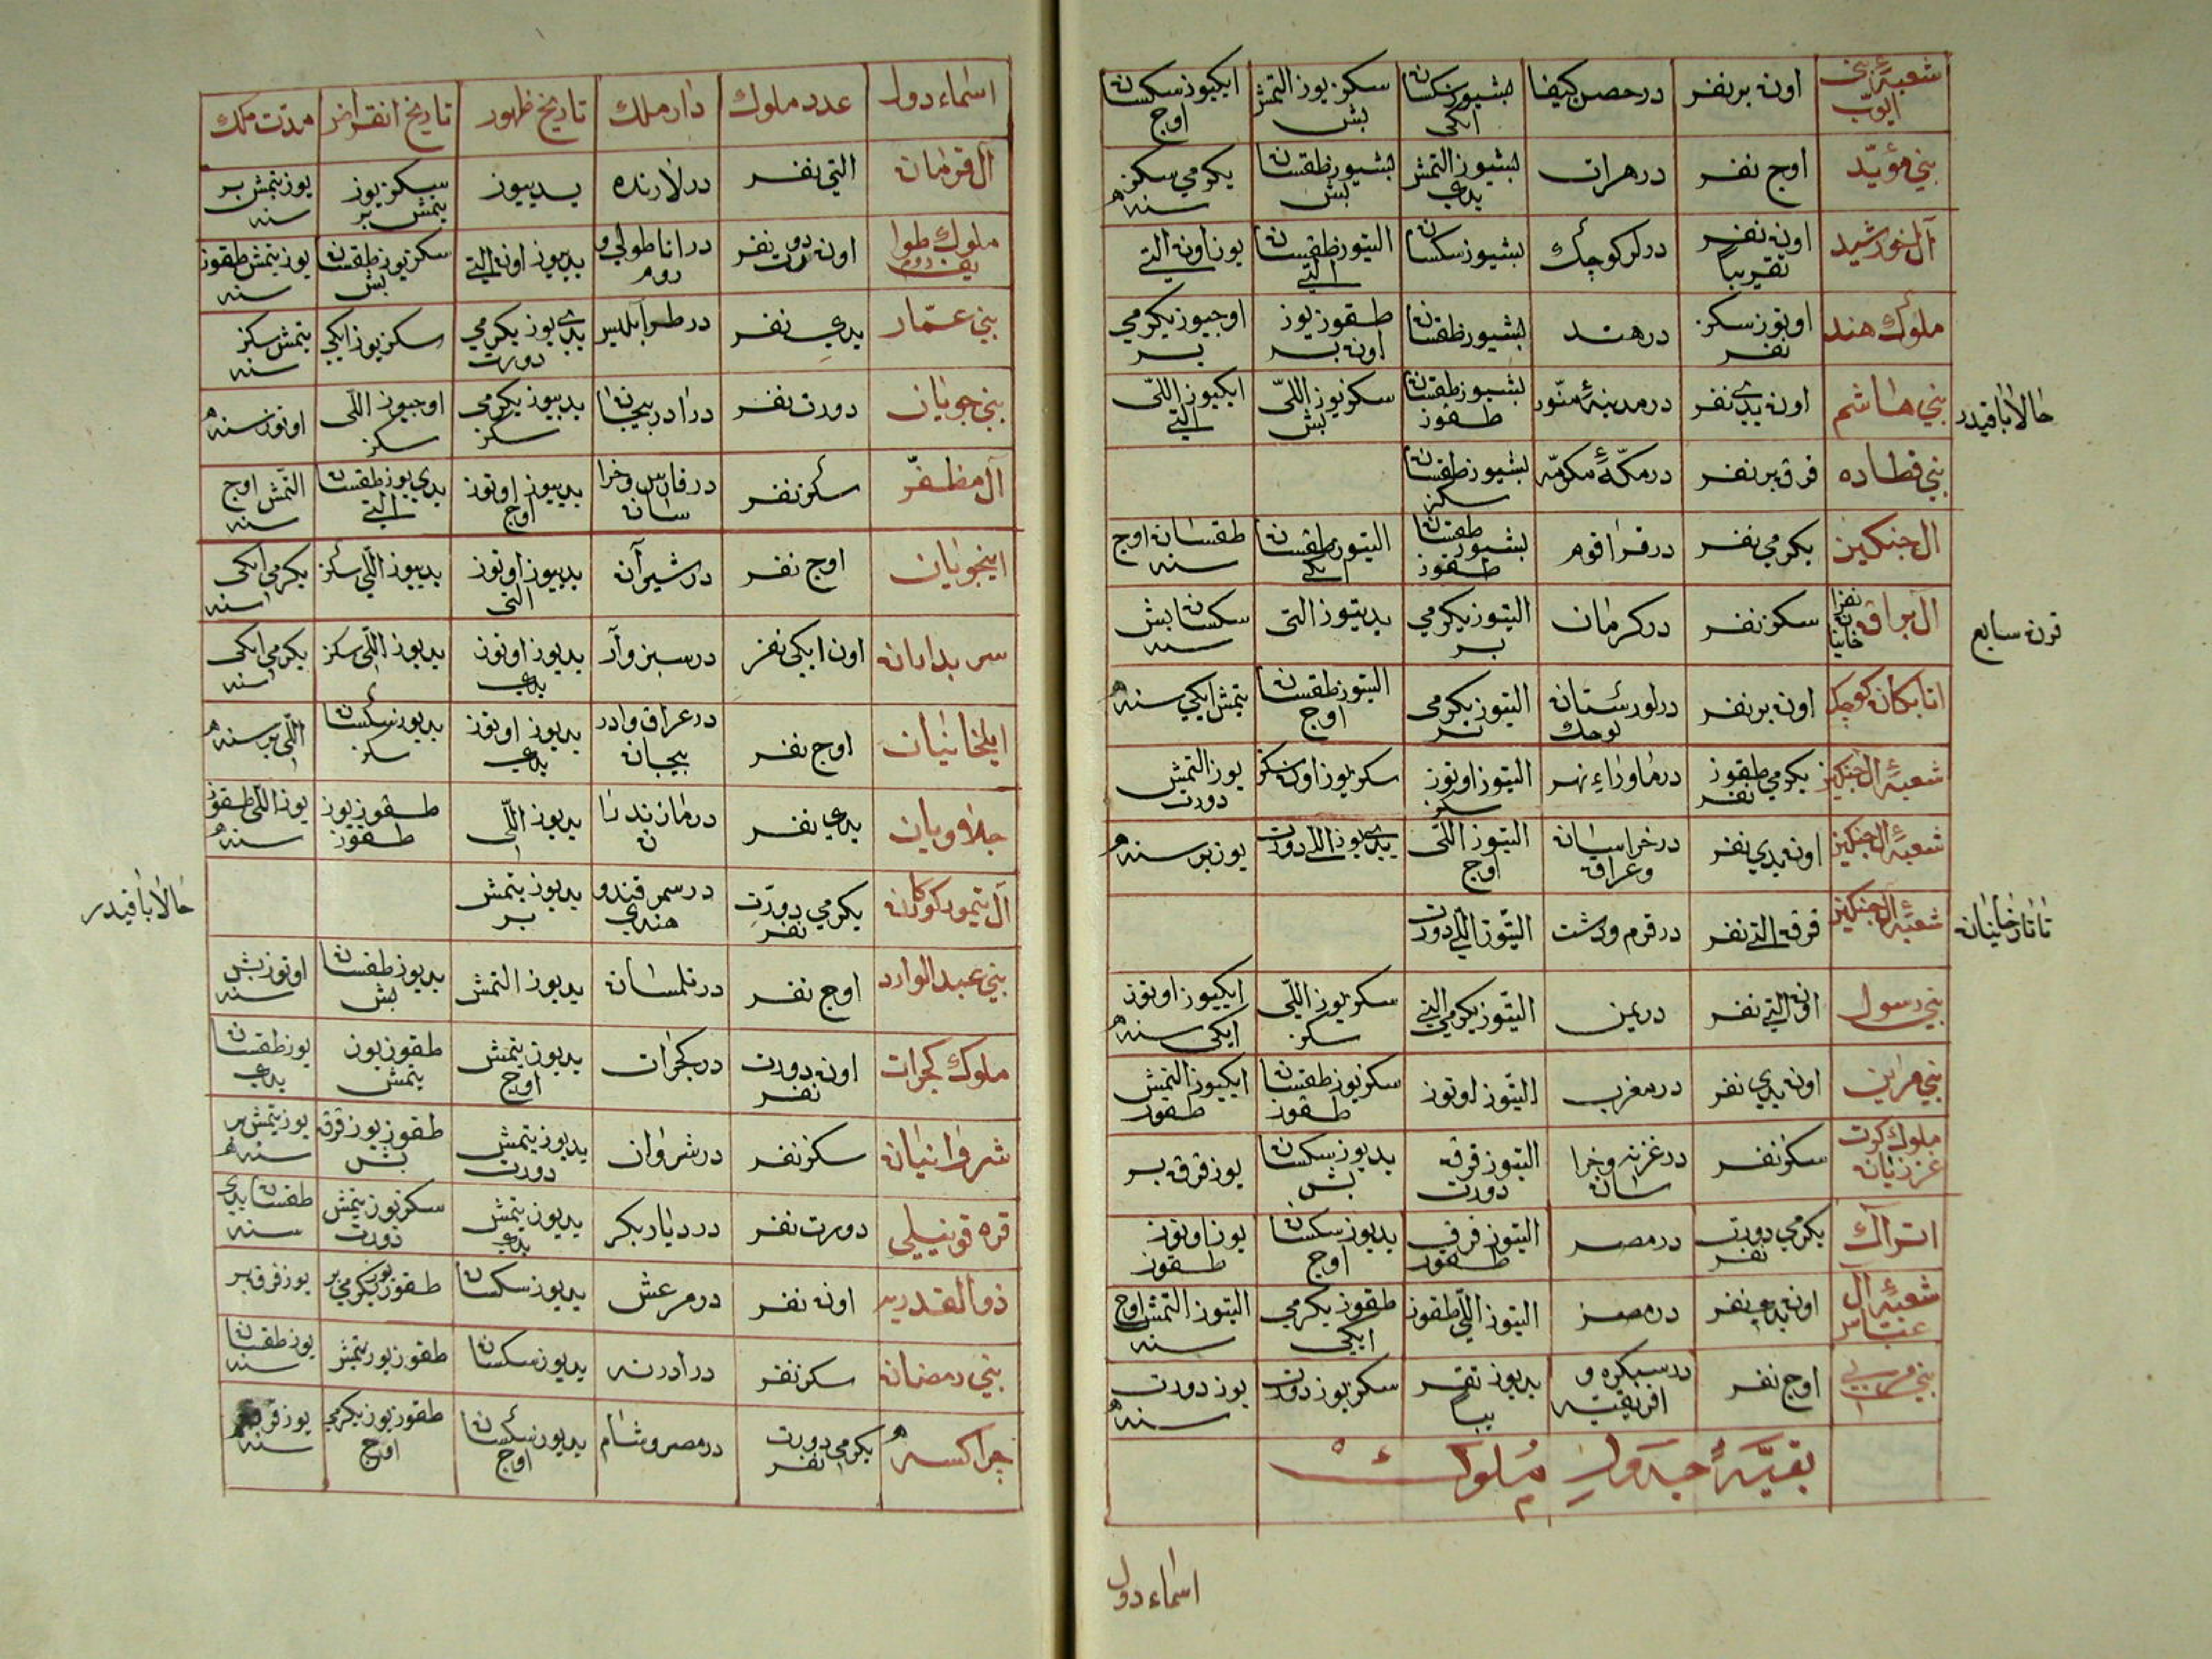 شعبهٔ بنی ایوب | اون بر نفر | در حصن کیفا | بشیوز سکسان ایکی | سکزیوز التمش بش | ایکیوز سکسان اوج
بنی مؤید | اوج نفر | در هرات | بشیوز التمش یدی | بشیوز طقسان بش | یکرمی سکز سنه
آل خورشید | اون نفر تقریباً | در لر کوچک | بشیوز سکسان | التیوز طقسان التی | یوز اون التی
ملوک هند | اوتوز سکز نفر | در هند | بشیوز طقسان | طقوز یوز اون بر | اوجیوز یکرمی بر
بنی هاشم | اون یدی نفر | در مدینهٔ منور | بشیوز طقسان طقوز | سکزیوز اللی بش | ایکیوز اللی التی
حالا باقیدر
بنی قطاده | قرق بر نفر | در مکهٔ مکرمه | بشیوز طقسان سکز
ال جنکیز | یکرمی نفر | در قراقوم | بشیوز طقسان طقوز | التیوز طقسان ایکی | طقسان اوج سنه
آل براق | سکز نفر | در کرمان | التیوز یکرمی بر | یدیوز التی | سکسان بش سنه
قرن سابع
اتابکان کوچک | اون بر نفر | در لورستان کوچک | التیوز یکرمی بر | التیوز طقسان اوج | یتمش ایکی سنه
شعبهٔ ال جنکیز | یکرمی طقوز نفر | در ماوراء نهر | التیوز اوتوز سکز | سکزیوز اون سکز | یوز التمش دورت
شعبهٔ ال جنکیز | اون یدی نفر | در خراسان وعراق | التیوز اللی اوج | یدی یوز اللی دورت | یوز بر سنه
شعبهٔ ال جنکیز | قرق التی نفر | در قرم ودشت | التیوز اللی دورت
تاتار خانیان
بنی رسول | اون التی نفر | در یمن | التیوز یکرمی التی | سکزیوز اللی سکز | ایکیوز اوتوز ایکی سنه
بنی مرین | اون یدی نفر | در مغرب | التیوز اوتوز | سکزیوز طقسان طقوز | ایکیوز التمش طقوز
ملوک کرت غزنیان | سکز نفر | در غزنه وخراسان | التیوز قرق دورت | یدیوز سکسان بش | یوز قرق بر
اتراک | یکرمی دورت نفر | در مصر | التیوز قرق طقوز | یدیوز سکسان اوج | یوز اوتوز طقوز
شعبهٔ ال عباس | اون یدی نفر | در مصر | التیوز اللی طقوز | طقوز یکرمی ایکی | التیوز التمش اوج سنه
بنی | اوج نفر | در بسکره و افریقیه | یدیوز تقریباً | سکزیوز دورت | یوز دورت سنه
بقیهٔ جدول ملوک
اسماء دول
اسماء دول | عدد ملوک | دار ملک | تاریخ ظهور | تاریخ انقراض | مدت ملک
آل قرمان | التی نفر | در لارنده | یدییوز | سکزیوز یتمش بر | یوز یتمش بر سنه
ملوک طوایف روم | اون دورت نفر | در اناطولی و روم | یدیوز اون التی | سکزیوز طقسان بش | یوز یتمش طقوز سنه
بنی عمار | یدی نفر | در طرابلس | یدی یوز یکرمی دورت | سکزیوز ایکی | یتمش سکز سنه
بنی جوپان | دورت نفر | در ادربیجان | یدیوز یکرمی سکز | اوجیوز اللی سکز | اوتوز سنه
آل مظفر | سکز نفر | در فارس وخراسان | یدیوز اوتوز اوج | یدی یوز طقسان التی | التمش اوج سنه
اینجویان | اوج نفر | در شیراز | یدیوز اوتوز التی | یدیوز اللی سکز | یکرمی ایکی سنه
سربداران | اون ایکی نفر | در سبزوار | یدیوز اوتوز یدی | یدیوز اللی سکز | یکرمی ایکی سنه
ایلخانیان | اوج نفر | در عراق وادربیجان | یدیوز اوتوز یدی | یدیوز سکسان سکز | اللی بر سنه
جلاویان | یدی نفر | در مازندران | یدیوز اللی | طقوز یوز طقوز | یوز اللی طقوز سنه
آل تیمور کورکان | یکرمی دورت نفر | در سمرقند و هندی | یدیوز یتمش بر
حالا باقیدر
بنی عبد الوارد | اوج نفر | در تلمسان | یدیوز التمش | یدیوز طقسان بش | اوتوز بش سنه
ملوک کجرات | اون دورت نفر | در کجرات | یدیوز یتمش اوج | طقوز یوز یتمش | یوز طقسان یدی
شروانیان | سکز نفر | در شروان | یدیوز یتمش دورت | طقوز یوز قرق بش | یوز یتمش بر سنه
قره قوینیلی | دورت نفر | در دیار بکر | یدیوز یتمش یدی | سکزیوز یتمش دورت | طقسان یدی سنه
ذو القدریه | اون نفر | در مرعش | یدیوز سکسان | طقوز یوز یکرمی بر | یوز قرق بر
بنی رمضان | سکز نفر | در ادرنه | یدیوز سکسان | طقوز یوز یتمش | یوز طقسان سنه
چراکسه | یکرمی دورت نفر | در مصر وشام | یدیوز سکسان اوج | طقوز یوز یکرمی اوج | یوز قرق سنه